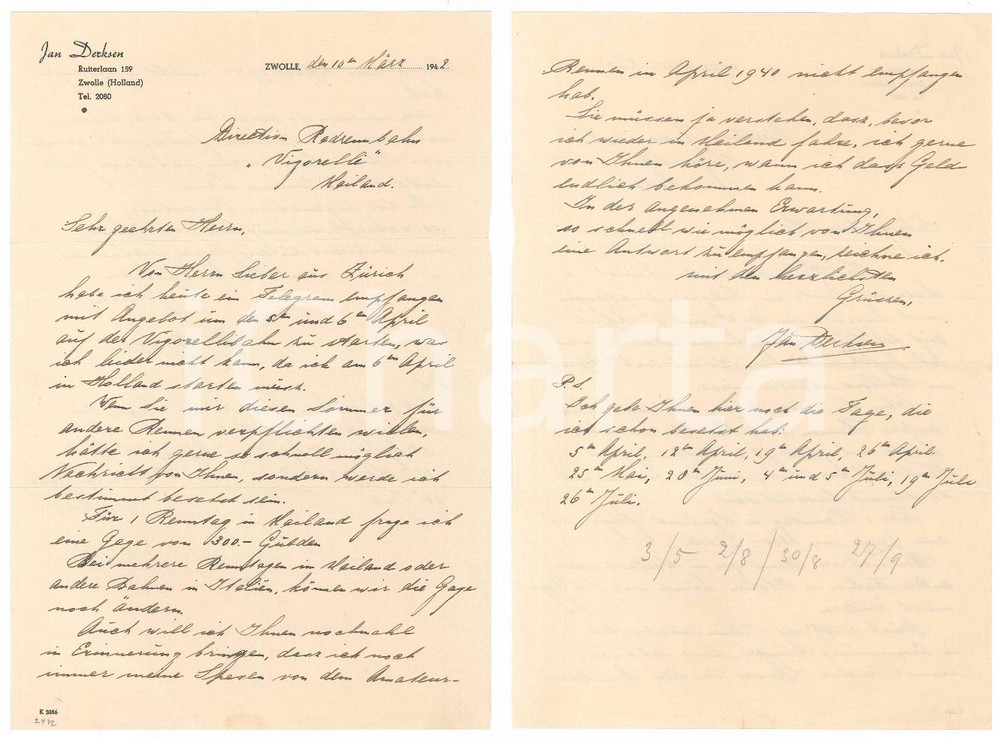 Jan Derksen
Ruiterlaan 159
Zwolle (Holland)
Tel. 2080
ZWOLLE, den 10ten März 1942
Direction Radrennbahn
„Vigorelli"
Mailand.
Sehr geehrten Herrn,
Von Herrn Lieber aus Zürich
habe ich heute ein Telegram empfangen
mit Angebot um den 5ten und 6ten April
auf der Vigorellibahn zu starten, was
ich leider nicht kann, da ich am 6ten April
in Holland starten musz.
Wenn Sie mir diesen Sommer für
andere Rennen verpflichten wielen,
hätte ich gerne so schnell möglich
Nachricht von Ihnen, sondern werde ich
bestimmt besetzt sein.
Für 1 Renntag in Mailand frage ich
eine Gage von 300.- Gulden
Bei mehrere Renntagen in Mailand oder
andere Bahnen in Italiën, können wir die Gage
noch ändern.
Auch will ich Ihnen nochmahl
in Erinnerung bringen, dasz ich noch
immer meine Spesen von dem Amateur-
K 3386
2472
Rennen in April 1940 nicht empfangen
hab.
Sie müssen ja verstehen, dasz, bevor
ich wieder in Mailand fahre, ich gerne
von Ihnen höre, wann ich dasz Geld
endlich bekommen kann.
In der angenehmen Erwartung,
so schnell wie möglich von Ihnen
eine Antwort zu empfangen, zeichne ich,
mit den herzlichsten
Grüssen,
Jan Derksen
P.S.
Ich gebe Ihnen hier noch die Tage, die
ich schon besetzt hab.
5ten April, 12ten April, 19ten April, 26ten April.
25ten Mai, 20ten Juni, 4ten und 5ten Juli, 19ten Juli
26ten Juli.
3/5 2/8 / 30/8 27/9
harta